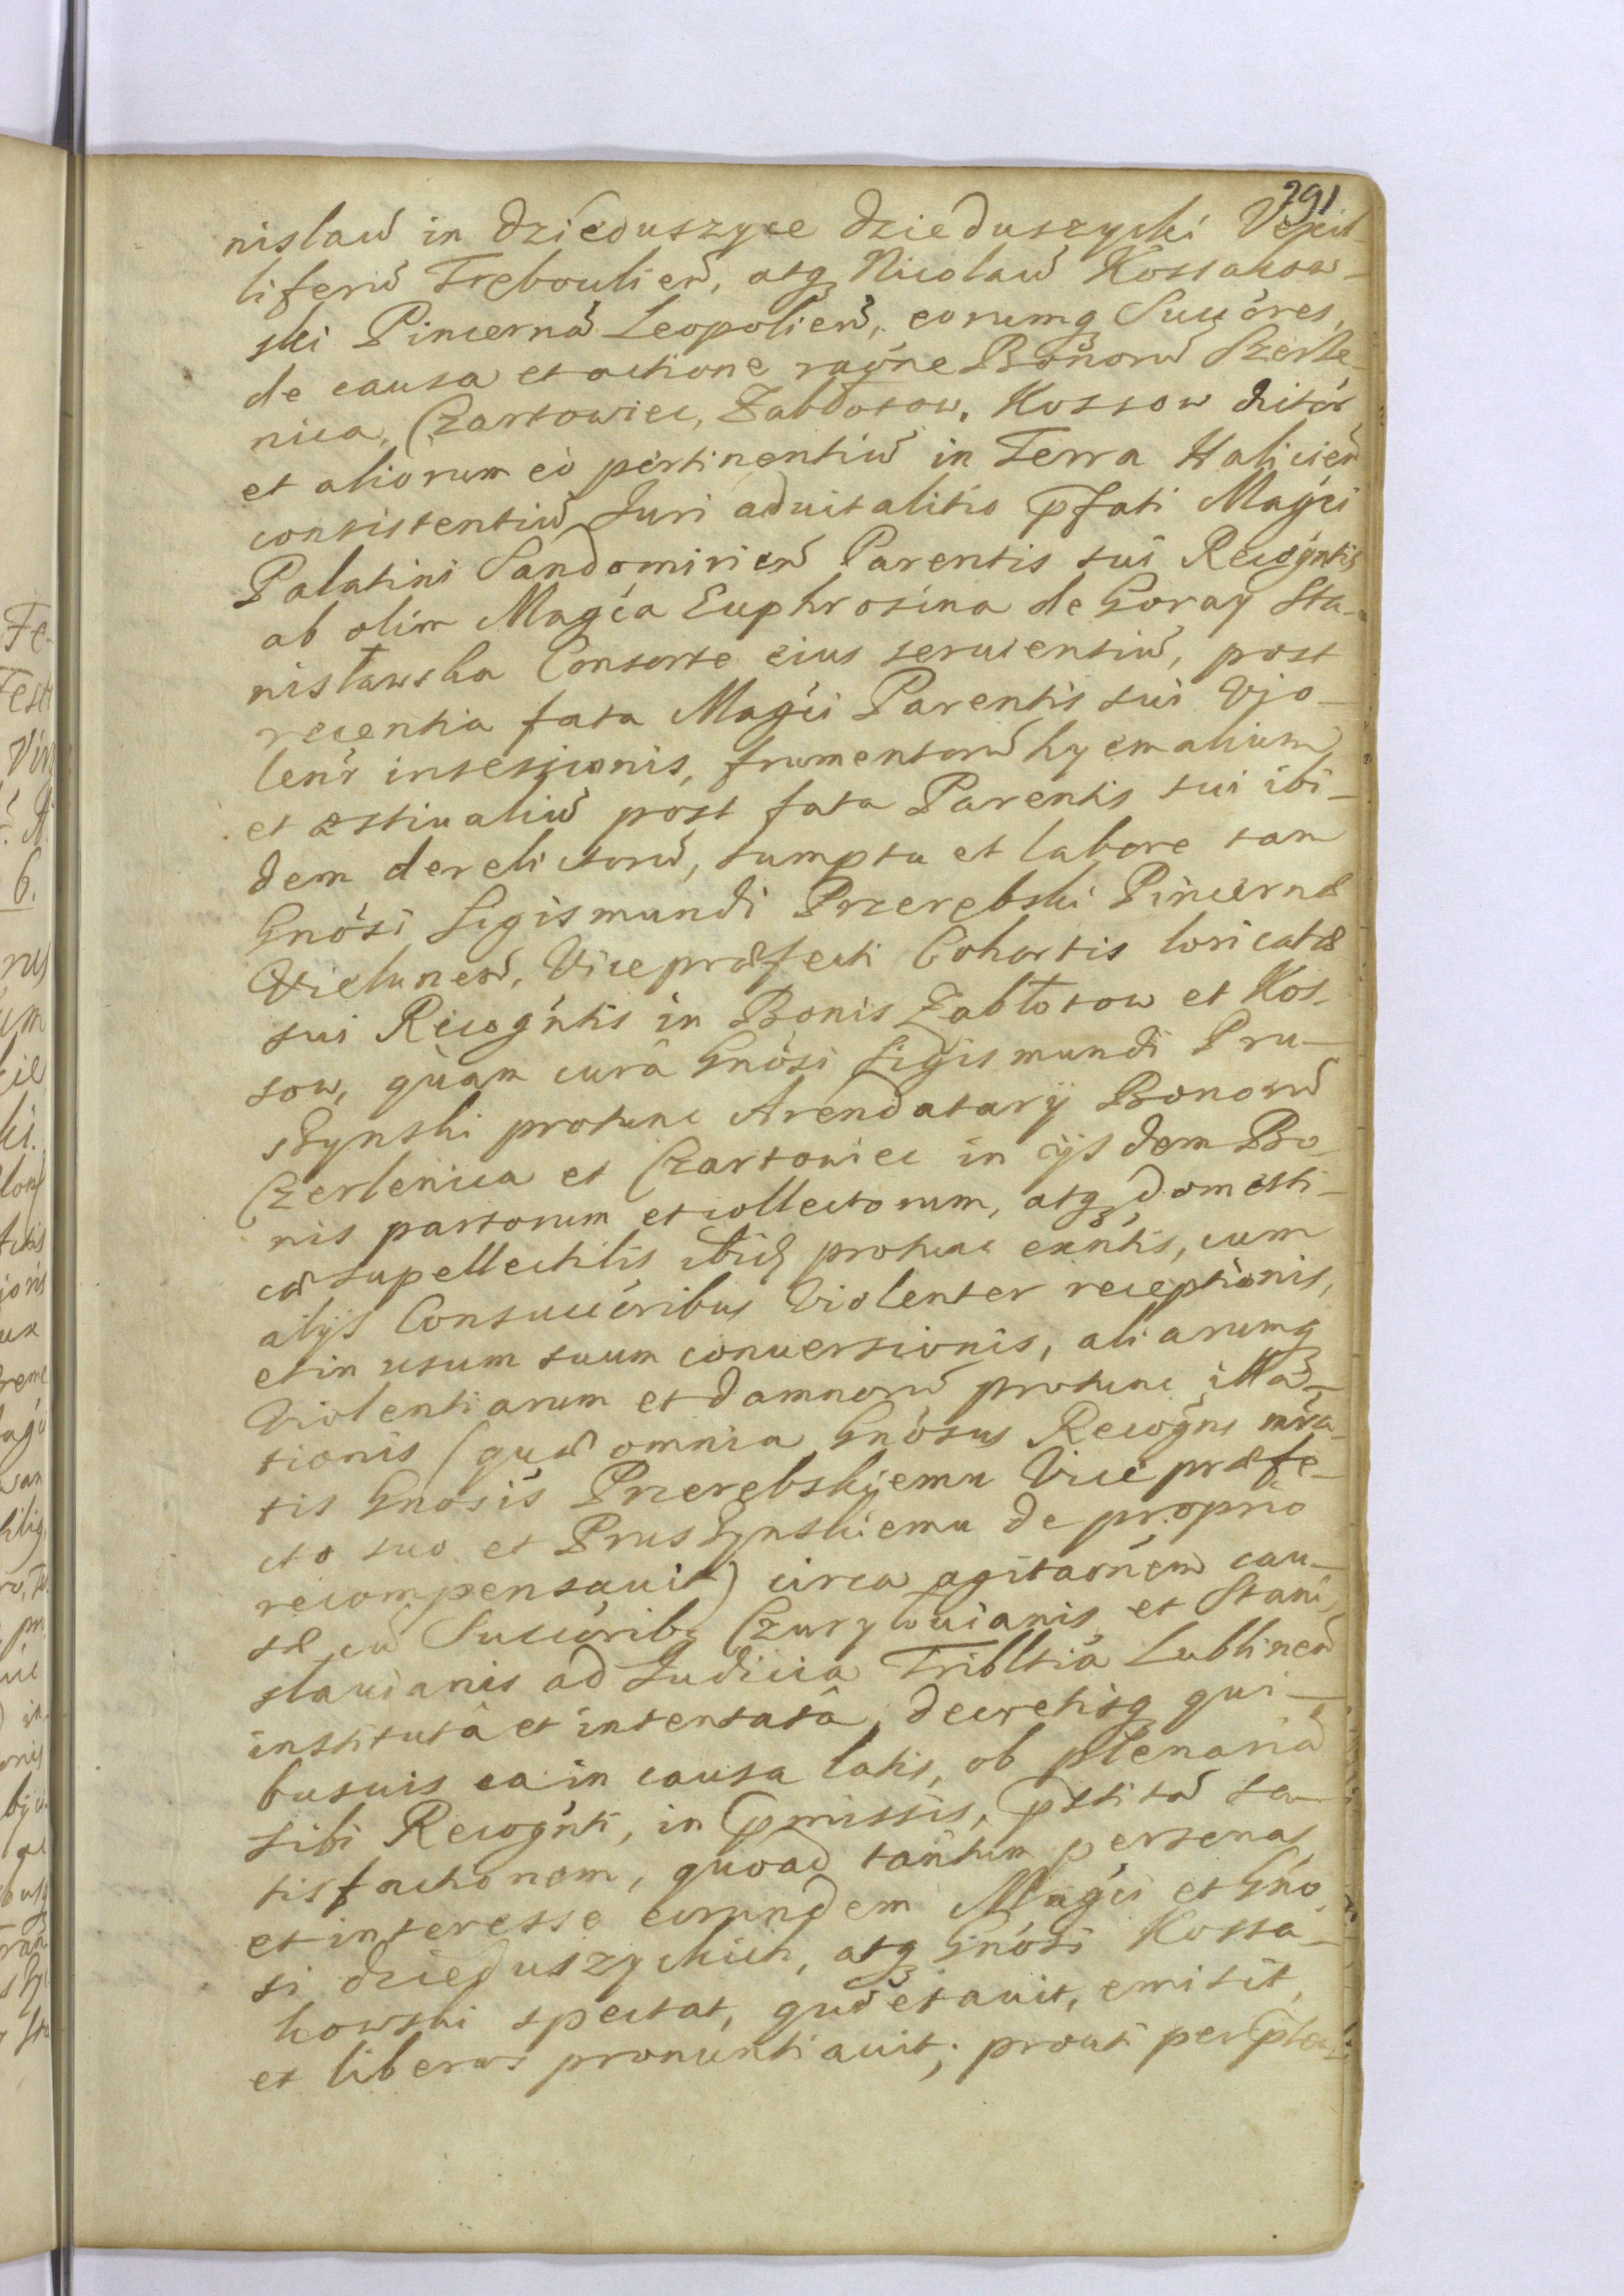 291
nislaũ in Dzieduszyce Dzieduszycki Vexil-
liferũ Treboulieñ, atq Nicolaũ Kossakow-
ski Pincernã Leopolieñ, eorumq Succ̃ores,
de causa et actione raõne Bonorũ Czerle-
nica, Czartowiec, Zabłotow, Kossow dictõr
et aliorum eò pertinentiũ in Terra Halicieñ
consistentiũ, Juri aduitalitio p̃fati Magc̃i
Palatini Sandomirieñ Parentis sui Recogñtis
ab olim Magc̃a Euphrosina de Goray Sta-
nisławska Consorte eius seruientiũ, post
recentia fata Magc̃i Parentis sui Vjo-
leñr insessionis, frumentorũ hyemalium
et æstiualiũ post fata Parentis sui ibi-
dem derelictorũ, sumptu et labore tam
Gnõsi Sigismundi Przerębski Pincernæ
Vieluneñ, Vicepræfecti Cohortis loricatæ
sui Recogñtis in Bonis Zabłotow et Kos-
sow, quàm curâ Gnõsi Sigismundi Pru-
szynski protunc Arendatarij Bonorũ
Czerlenica et Czartowiec in ijsdem Bo-
nis partorum et collectorum, atq domesti-
cæ supellectilis ibid protunc exñtis, cum
alijs Consucc̃oribus Violenter receptionis,
et in usum suum conuersionis, aliarumq
Violentiarum et damnorũ protunc illa-
tionis (quæ omnia Gnõsus Recogñs
tis Gnõsis Przerębskiemu Vicepræfe-
cto suo et Pruszynskiemu de proprio
recompensauit) circa agitaõnem cau-
sæ cũ Succ̃orib Czuryłouianis et Stani-
slauianis ad Judicia Triblia Lublineñ
institutâ et intentatâ, decretisq qui-
busuis ea in causa latis, ob plenariã
sibi Recogñti, in p̃missis, p̃stitã sa-
tisfactionem, quoad tantũm personas
et interesse eorundem Magc̃i et Gño
si Dzieduszyckich, atq Gnõsi Kossa-
kowski spectat, quietauit, emisit,
et liberos pronuntiauit; prouti per